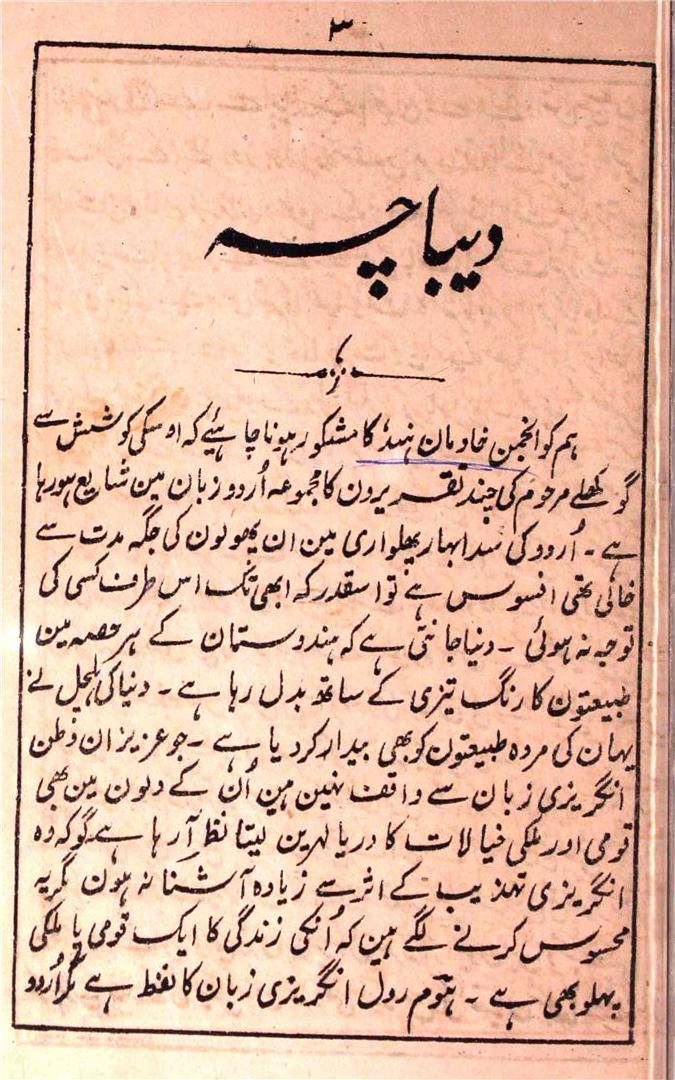 ۳
دیباچہ
ہم کو انجمن خادمان ہند کا مشکور ہونا چاہئیے کہ اوسکی کوشش سے
گوکھلے مرحوم کی چند تقریرون کا مجموعہ اُردو زبان مین شایع ہو رہا
ہے ۔ اُردو کی سدا بہار پھلواری مین ان پھولون کی جگہ مدت سے
خالی تھی افسوس ہے تو اسقدر کہ ابھی تک اس طرف کسی کی
توجہ نہ ہوئی ۔ دنیا جانتی ہے کہ ہندوستان کے ہر حصہ مین
طبیعتون کا رنگ تیزی کے ساتھ بدل رہا ہے ۔ دنیا کی ہلچل نے
یہان کی مردہ طبیعتون کو بھی بیدار کر دیا ہے ۔ جو عزیزان وطن
انگریزی زبان سے واقف نہین ہین اُن کے دلون مین بھی
قومی اور ملکی خیالات کا دریا لہرین لیتا نظر آ رہا ہے گو کہ وہ
انگریزی تہذیب کے اثر سے زیادہ آشنا نہ ہون مگر یہ
محسوس کرنے لگے ہین کہ اُنکی زندگی کا ایک قومی یا ملکی
پہلو بھی ہے ۔ ہوم رول انگریزی زبان کا لفظ ہے مگر اُردو